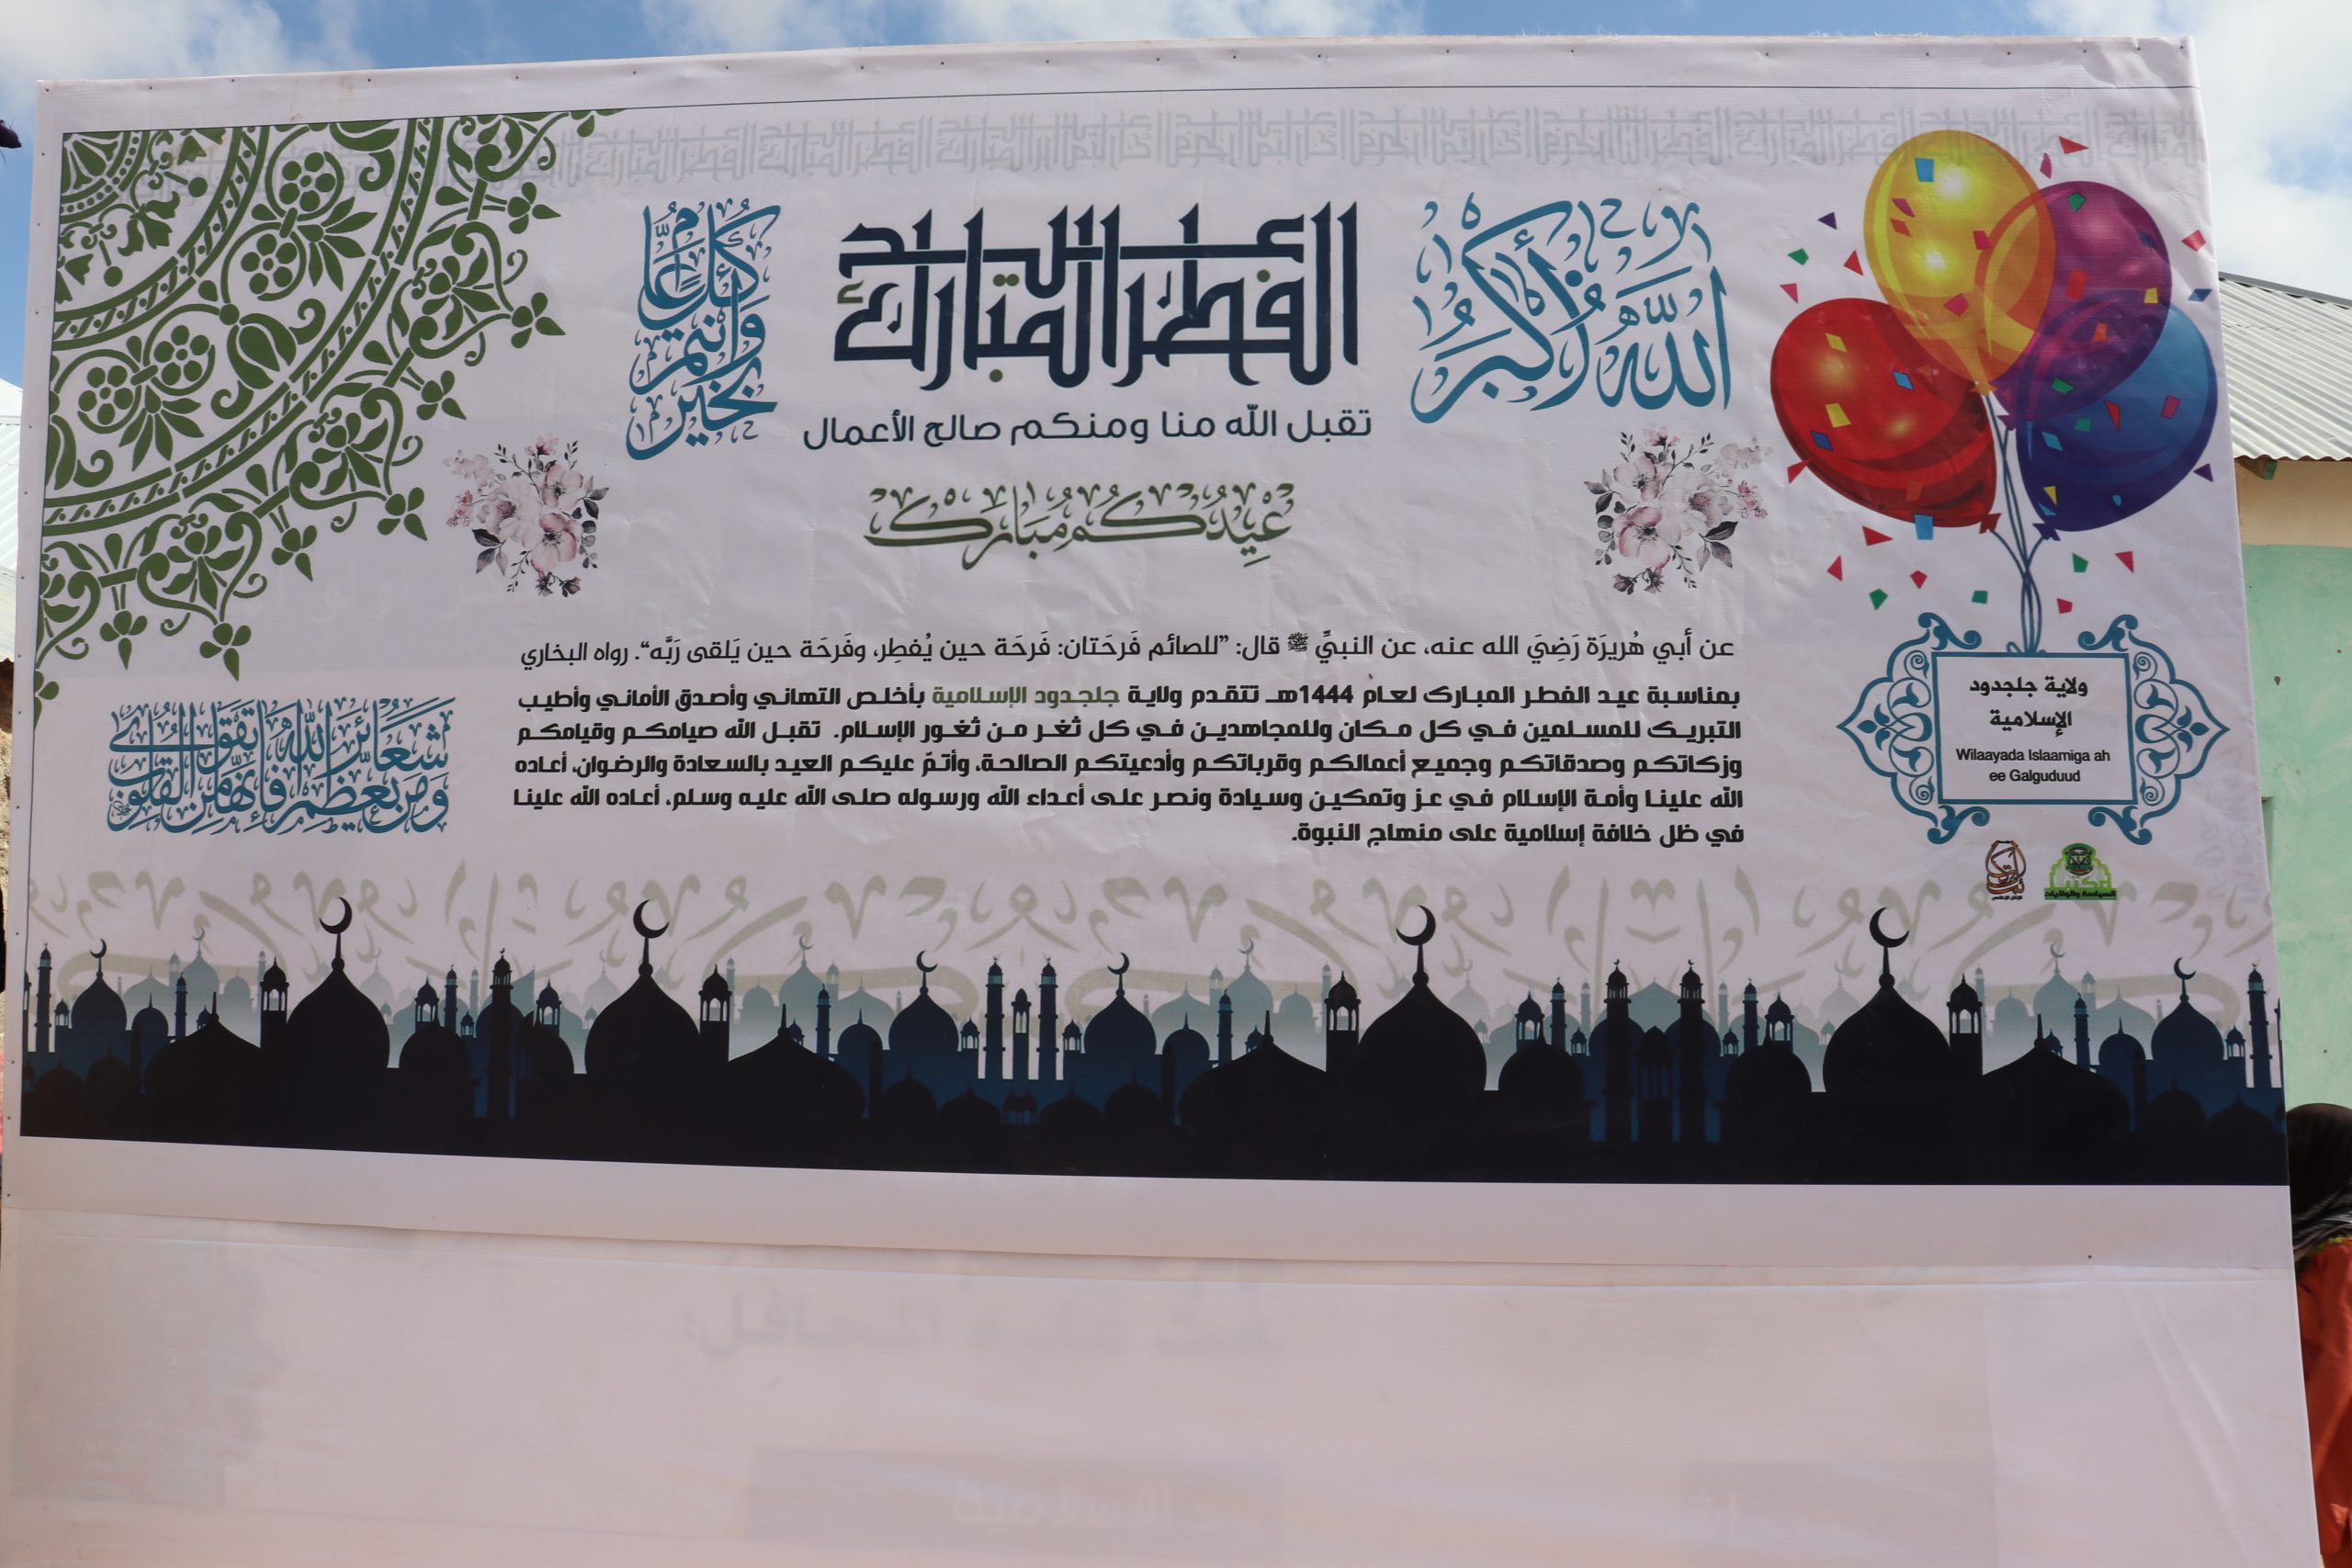 الله أكبر
عيد الفطر المبارك
كل عام
وأنتم
بخير
تقبل الله منا ومنكم صالح الأعمال
عِيدُكُم مُبَارَك
عن أبي هُريرَة رَضِيَ الله عنه، عن النبيِّ ﷺ قال: "للصائم فَرحَتان: فَرحَة حين يُفطِر، وفَرحَة حين يَلقى رَبَّه". رواه البخاري
بمناسبة عيد الفطر المبارك لعام 1444هـ تتقدم ولاية جلجدود الإسلامية بأخلص التهاني وأصدق الأماني وأطيب
التبريك للمسلمين في كل مكان وللمجاهدين في كل ثغر من ثغور الإسلام. تقبل الله صيامكم وقيامكم
وزكاتكم وصدقاتكم وجميع أعمالكم وقرباتكم وأدعيتكم الصالحة، وأتمّ عليكم العيد بالسعادة والرضوان، أعاده
الله علينا وأمة الإسلام في عز وتمكين وسيادة ونصر على أعداء الله ورسوله صلى الله عليه وسلم، أعاده الله علينا
في ظل خلافة إسلامية على منهاج النبوة.
ومن يعظم شعائر الله فإنها من تقوى القلوب
ولاية جلجدود
الإسلامية
Wilaayada Islaamiga ah
ee Galguduud
مكتب
السياسة والولايات